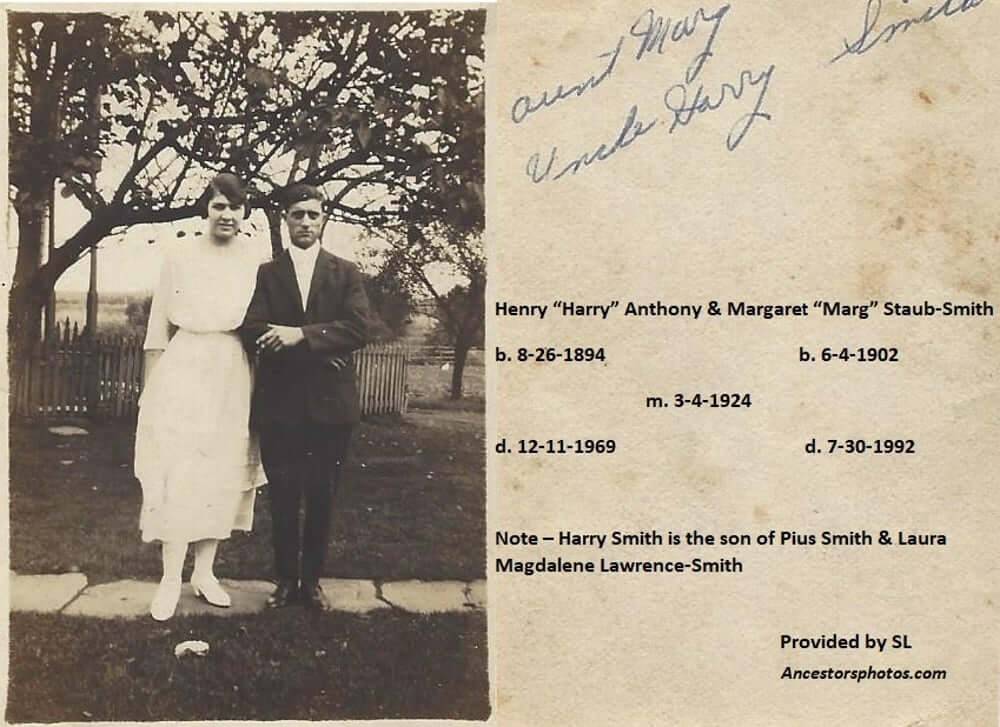 aunt Marg Smith
Uncle Harry
Henry “Harry” Anthony & Margaret “Marg” Staub-Smith
b. 8-26-1894 b. 6-4-1902
m. 3-4-1924
d. 12-11-1969 d. 7-30-1992
Note – Harry Smith is the son of Pius Smith & Laura
Magdalene Lawrence-Smith
Provided by SL
Ancestorsphotos.com